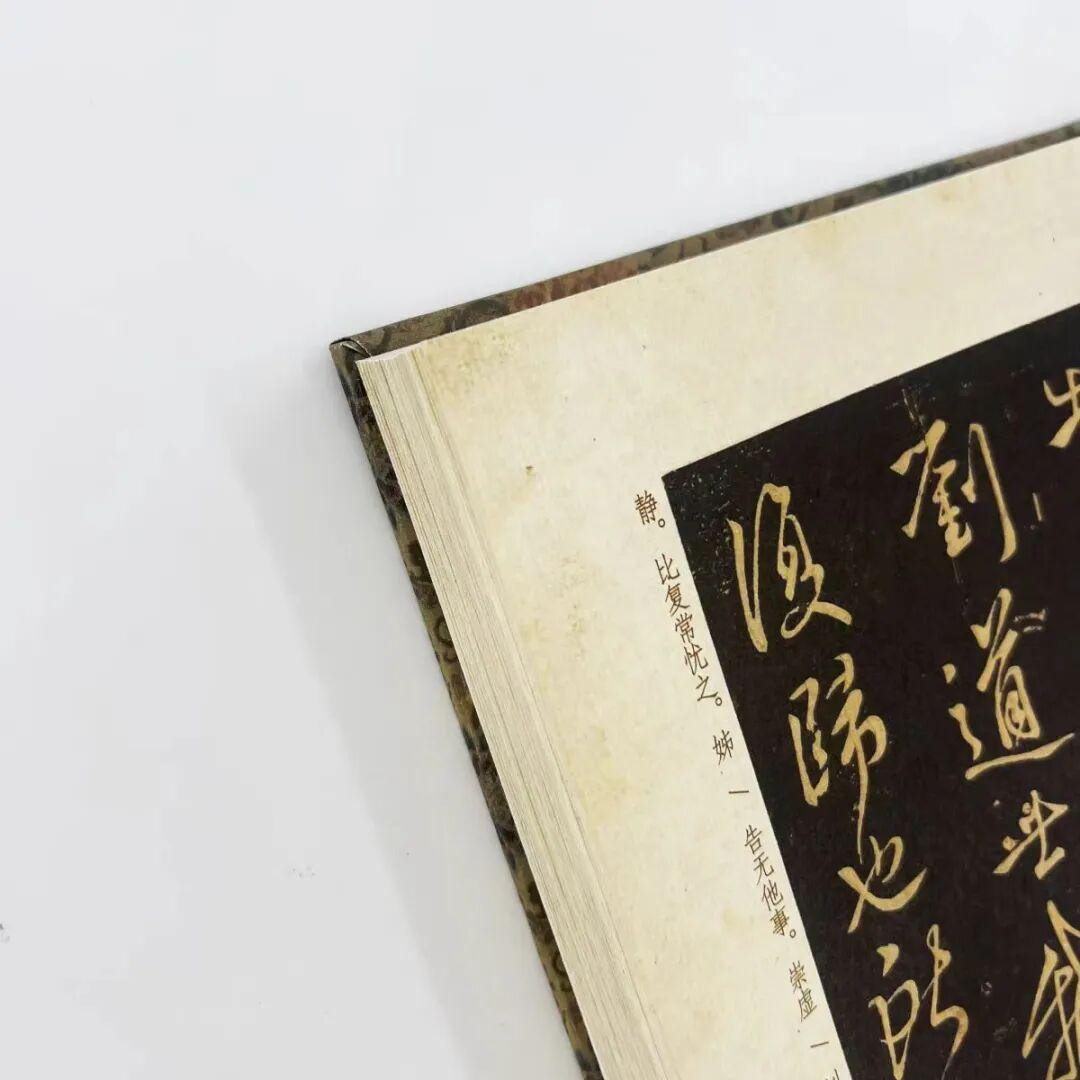 劉道士
復歸也
静。比复常忧之。姊一告无他事。崇虚一